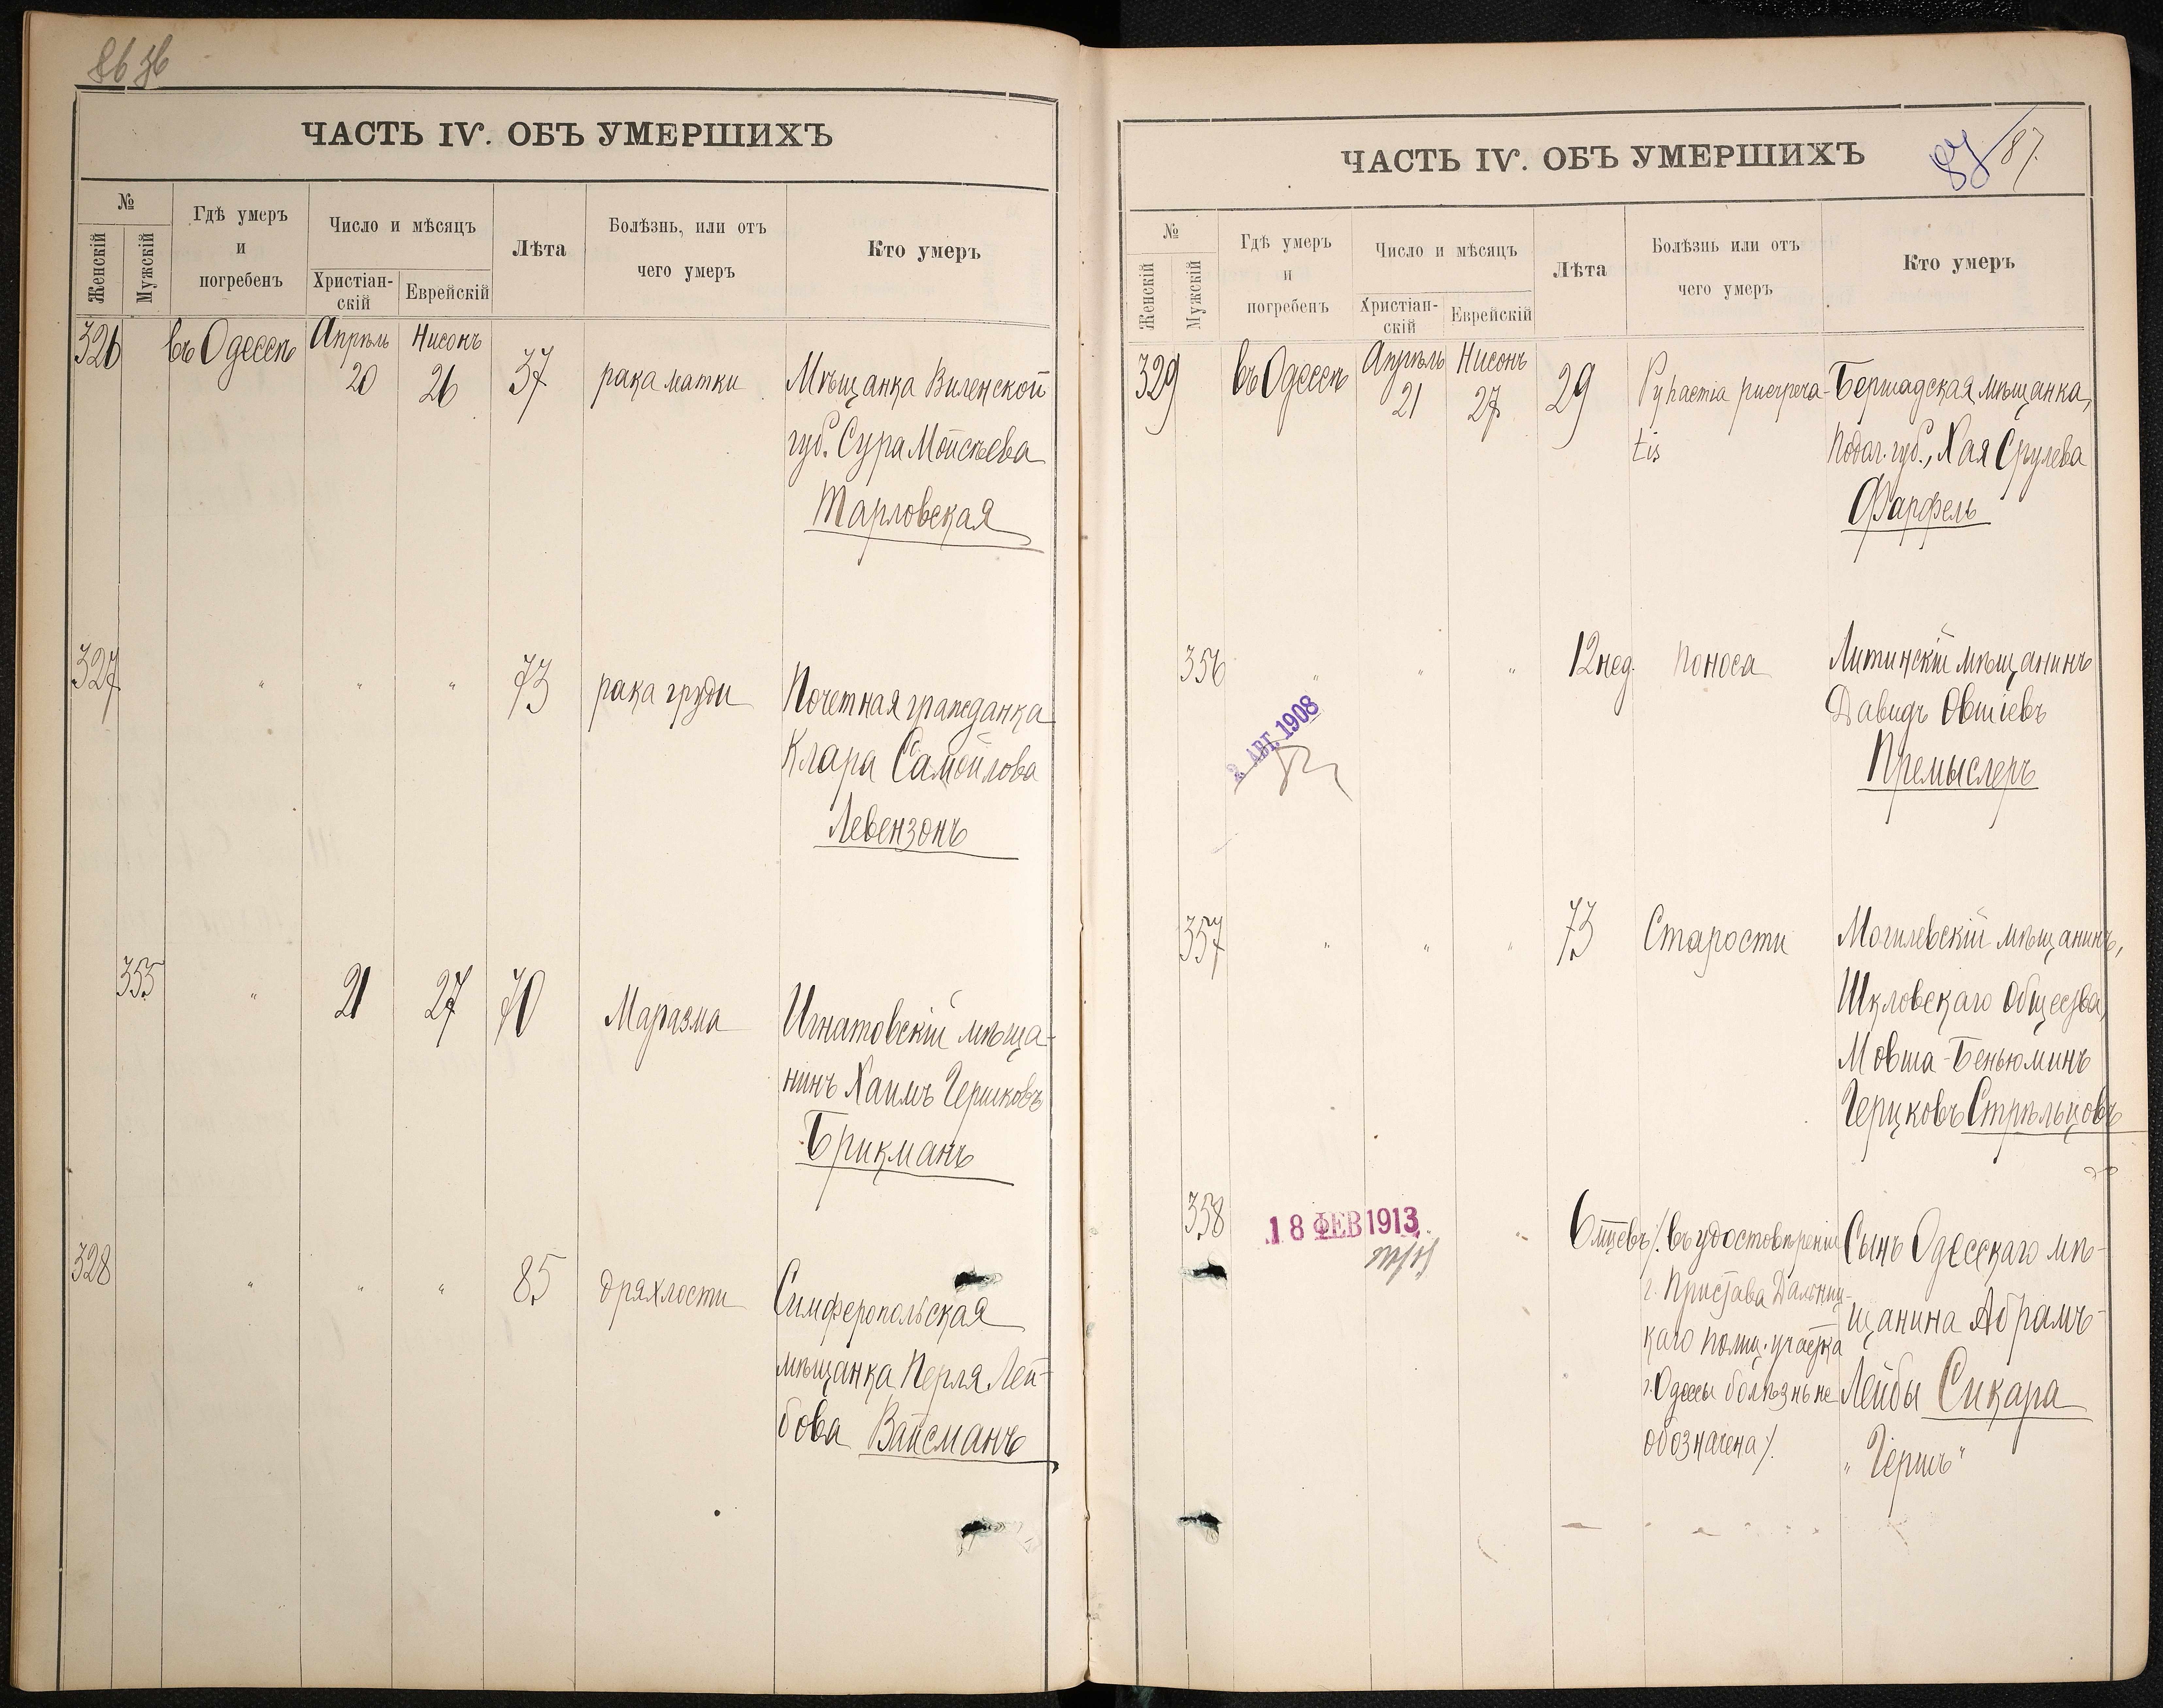 86 86
ЧАСТЬ IV. ОБЪ УМЕРШИХЪ
№
Женскій
Мужскій
Гдѣ умеръ
и
погребенъ
Число и мѣсяцъ
Христіан-
скій
Еврейскій
Лѣта
Болѣзнь, или отъ
чего умеръ
Кто умеръ
326 въ Одессѣ Апрѣль 20 Нисонъ 26 37 рака матки Мѣщанка Виленской
губ. Сура Мойсѣева
Тарловская
327 " " " 73 рака груди Почетная гражданка
Клара Самойлова
Левензонъ
355 " 21 27 70 Маразма Игнатовскій мѣща-
нинъ Хаимъ Гершковъ
Брикманъ
328 " " " 85 дряхлости Симферопольская
мѣщанка Перля Лей-
бова Вайсманъ
ЧАСТЬ IV. ОБЪ УМЕРШИХЪ
87 87.
№
Женскій
Мужскій
Гдѣ умеръ
и
погребенъ
Число и мѣсяцъ
Христіан-
скій
Еврейскій
Лѣта
Болѣзнь или отъ
чего умеръ
Кто умеръ
329 въ Одессѣ Апрѣль 21 Нисонъ 27 29 Бершадская мѣщанка,
tis Подол. губ., Хая Срулева
Фарфель
356 " " " 12 нед. поноса Литинскій мѣщанинъ
Давидъ Овшіевъ
Премыслеръ
2 АВГ. 1908
357 " " " 73 Старости Могилевскій мѣщанинъ,
Шкловскаго Общества,
Мовша-Беньюминъ
Герцковъ Стрѣльцовъ
358 18 ФЕВ 1913 " 6 мцевъ /. въ удостовѣреніи Сынъ Одесскаго мѣ-
г. Пристава Дальниц-
щанина Абрамъ-
каго полиц. участка
г. Одессы болѣзнь не Лейбы Сикара
обозначена /. "Гершъ"